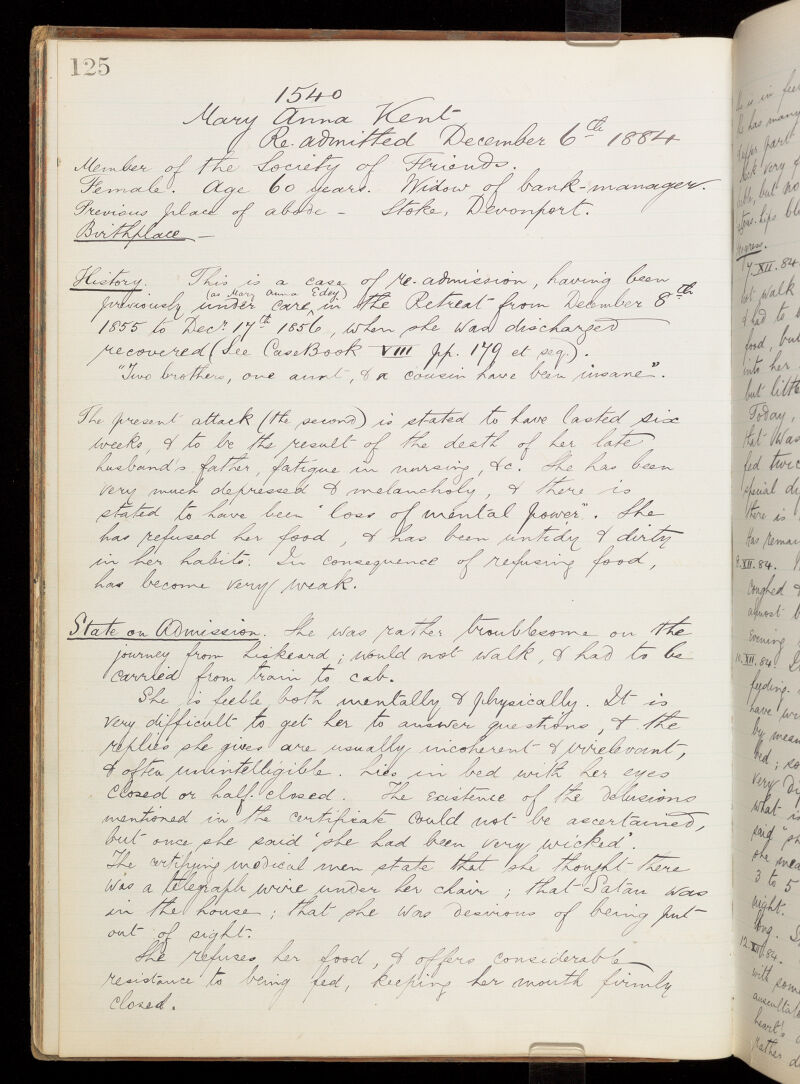 125
1540
Mary Anna Kent
Re-admitted December 6th 1884
Member of the Society of Friends.
Female. Age 60 years. Widow of bank-manager.
Previous place of abode - Stoke, Devonport.
Birthplace -
History. This is a case of re-admission, having been
previously under care (as Mary Anna Eddy) in the Retreat from December 8th
1855 to Decr 17th 1856, when she was discharged
recovered (See Case Book VIII pp. 179 et seq.).
"Two brothers, one aunt, & a cousin have been insane".
The present attack (the second) is stated to have lasted six
weeks, & to be the result of the death of her late
husband's father, fatigue in nursing, &c. She has been
very much depressed & melancholy, & there is
stated to have been "loss of mental power". She
has refused her food, & has been untidy & dirty
in her habits. In consequence of refusing food,
has become very weak.
State on Admission. She was rather troublesome on the
journey from Liskeard; would not walk, & had to be
carried from train to cab.
She is feeble both mentally & physically. It is
very difficult to get her to answer questions, & the
replies she gives are usually incoherent & irrelevant,
& often unintelligible. Lies in bed with her eyes
closed or half-closed. The existence of the delusions
mentioned in the certificate could not be ascertained,
but once she said 'she had been very wicked'.
The certifying medical men state that she thought there
was a telegraph wire under her chair; that Satan was
in the house; that she was desirous of being put
out of sight.
She refuses her food, & offers considerable
resistance to being fed, keeping her mouth firmly
closed.
is in
has many
part
very
but no
lips
7.XII.84
walk
had to
food, but
into her
but little
Today,
that was
fed twice
there is
has
9.XII.84.
coughed &
almost
evening
10.XII.84
feeding.
have
by
bed; so
very
what is
said "
she
3 to 5
night.
long.
12.XII.84.
with some
heart's
rather